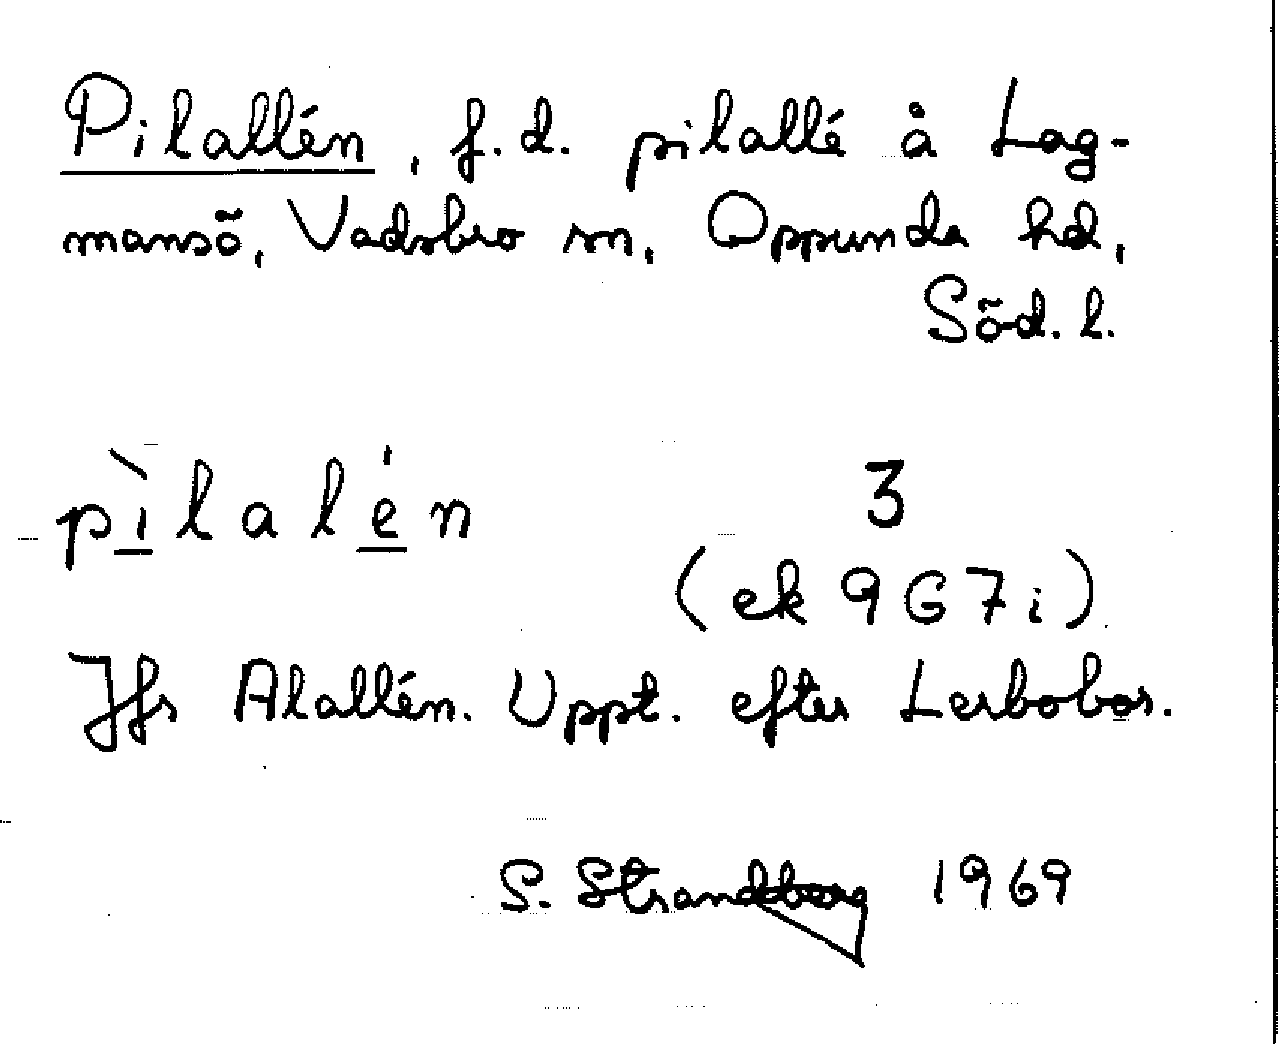 Pilallén, f.d. pilallé å Lag-
mansö, Vadsbro sn, Oppunda hd,
Söd. l.
pìlalén 3
(ek 9G7i)
Jfr Alallén. Uppt. efter Lerbobor.
S. Strandberg 1969